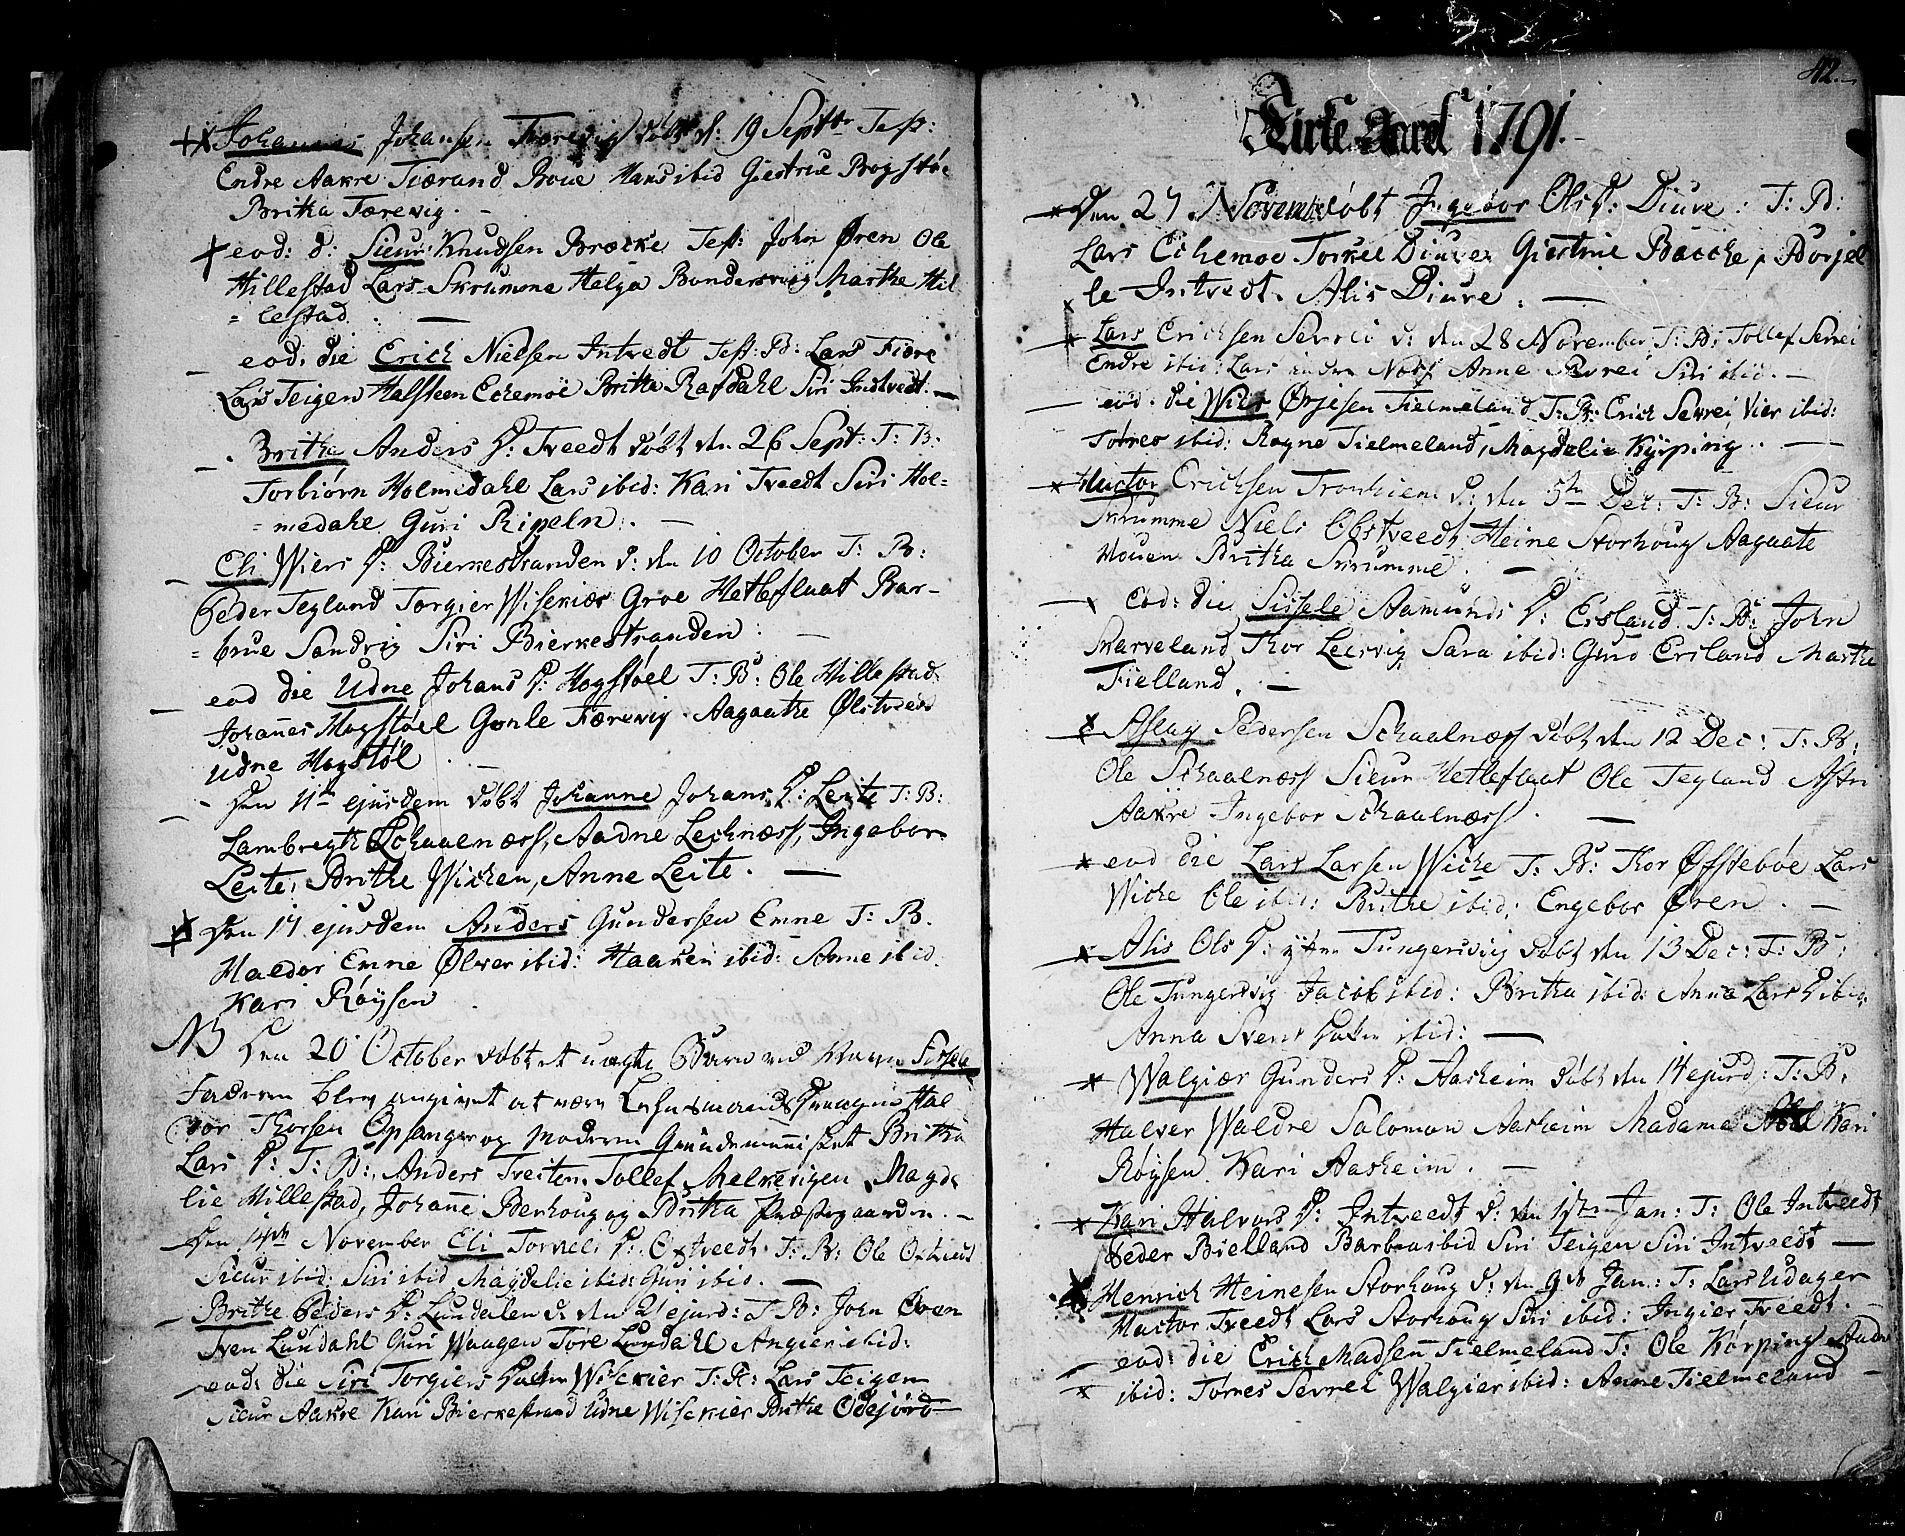 Johannes Johansen Færevig døbt d: 19 Septbr Test:
Endre Aakre Tiærand Boue Hans ibid Giertrue Bogstøe
Britha Færevig. –
eod: d: Sieur Knudsen Bræcke Test: John Øren Ole
Hillestad Lars Skrumme Helga Bondersvig Marthe Hil
= lestad. –
eod: die Erich Nielsen Intvedt Test: B: Lars Fiære
Lars Teigen Halsteen Echemoe Britha Rafdahl Siri Indtvedt –
Britha Anders D: Tveedt døbt den 26 Sept: T: B:
Torbiørn Holmedahl Lars ibid: Kari Tveedt Siri Hol=
= medahl Guri Ripeln. –
Eli Wiers D: Bierkestranden d: den 10 October T: B:
Peder Tegland Torgier Wisekiær Groe Hetleflaat Bar-
= brue Sandvig Siri Bierkestranden. –
eod die Udne Johans D: Hogstøel T: B: Ole Hillestad
Johannes Hogstøel Gonle Færevig Aagaathe Ølstveed
Udne Hogstøl –
Den 11te ejusdem døbt Johanne Johans D: Leite T: B:
Lambregth Schaalnæss, Aadne Lechnæss, Ingebor
Leite, Brithe Wichen, Anne Leite. –
Den 17 ejusdem Anders Gundersen Emne T: B.
Haldor Emne Ølver ibid: Haaken ibid: Anne ibid.
Kari Røysen
NB Den 20 October døbt et uægte Barn ved Navn Sissele
Faderen blev angivet at være Lehnsmands Drengen Hal
vor Thorsen Opsanger og Moderen Qvindemennisket Britha
Lars D: T: B: Anders Treiten Tollef Melkevigen Magde
lie Hillestad, Johanne Berhoug og Britha Præstegaarden. –
Den 14de November Eli Torkels D: Oxtveedt T: B: Ole Oxtvedt
Sieur ibid: Siri ibid Magdelie ibid: Guri ibid. –
Brithe Peders D: Lundalen d: den 21 ejusd: T: B: John Øren
Sven Lundahl Guri Waagen Tore Lundahl Angier ibid:
eod: die Siri Torgiers Datter Wisekier T: B: Lars Teigen
Sieur Aakre Kari Bierkestrand Udne Wisekier Brithe Ødejord –
42.
Kirke Aaret 1791.
Den 27 Novemb døbt Ingebor Ols D: Diuve: T: B:
Lars Echemoe Torkel Diuve, Giertrue Bacche, Borjel
le Intvedt, Alis Diuve. –
Lars Erichsen Sevrei d: den 28 November T: B: Tollef Sevrei
Endre ibid: Lars Anne Sevrei Siri ibid. –
eod. die Wier Ørjesen Tielmeland T: B: Erich Sevrei Vier ibid:
Tørres ibid: Ragne Tielmeland, Magdelie Kyrping. –
Hactor Erichsen Tronhiem d: den 5te Dec: T: B: Sieur
Skrumme Niels Obstveedt Heine Storhoug Aagaate
Mouen Britha Skrumme. –
eod: die Sissele Aamunds D: Ersland T: B: John
Skarveland Thor Leervig Sara ibid: Guro Ersland Marthe
Fielland. –
Aslag Pedersen Schaalnæss døbt den 12 Dec: T: B:
Ole Schaalnæss Sieur Hetleflaat Ole Tegland Astri
Aakre Ingebor Schaalnæss. –
eod die Lars Larsen Wiche T: B: Thor Øfstebøe Lars
Wiche Ole ibid: Brithe ibid: Engebor Øren. –
Alis Ols D: ytre Tungesvig døbt den 13 Dec: T: B:
Ole Tungesvig Jacob ibid: Britha ibid: Anna Lars D ibid
Anna Svens Datter ibid: –
Walgiær Gunders D: Aasheim døbt den 14 ejusd: T: B:
Halver Waldre Salomon Aasheim Madame Kari
Røysen Kari Aasheim. –
Kari Halvors D: Intveedt d: den 1ste Jan: T: Ole Intveedt
Peder Bielland Barbra ibid Siri Teigen Siri Intveedt –
Henrich Heinesen Storhoug d: den 9d Jan: T: Lars Udager
Hactor Tveedt Lars Storhoug Siri ibid: Ingier Tveedt. –
eod: die Erich Madsen Tielmeland T: Ole Kørping Aadn
ibid: Tørres Sevrei Walgier ibid: Anne Tielmeland –